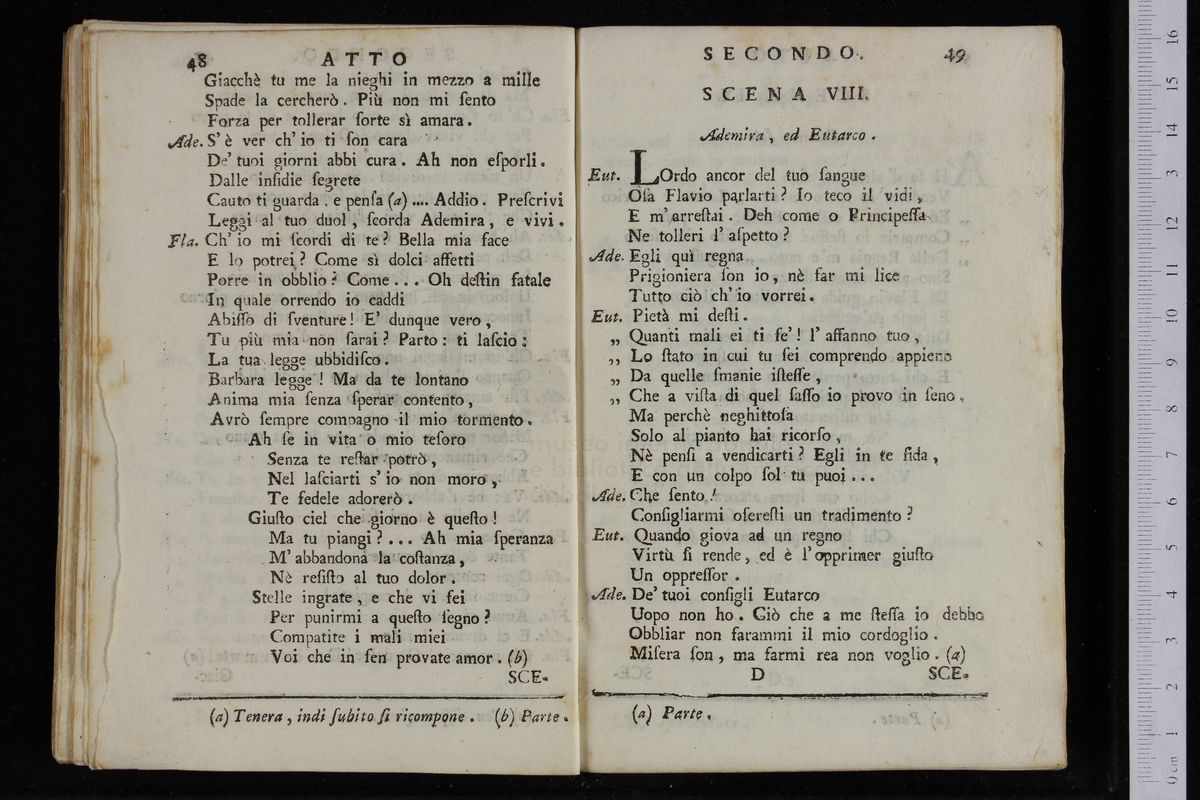 48 ATTO
Giacchè tu me la nieghi in mezzo a mille
Spade la cercherò. Più non mi ſento
Forza per tollerar ſorte sì amara.
Ade. S'è ver ch' io ti ſon cara
De' tuoi giorni abbi cura. Ah non eſporli.
Dalle inſidie ſegrete
Cauto ti guarda, e penſa (a) .... Addio. Preſcrivi
Leggi al tuo duol, ſcorda Ademira, e vivi.
Fla. Ch' io mi ſcordi di te? Bella mia face
E lo potrei? Come sì dolci affetti
Porre in obblio? Come... Oh deſtin fatale
In quale orrendo io caddi
Abiſſo di ſventure! E' dunque vero,
Tu più mia non ſarai? Parto: ti laſcio:
La tua legge ubbidiſco.
Barbara legge! Ma da te lontano
Anima mia ſenza ſperar contento,
Avrò ſempre compagno il mio tormento.
Ah ſe in vita o mio teſoro
Senza te reſtar potrò,
Nel laſciarti s' io non moro,
Te fedele adorerò.
Giuſto ciel che giorno è queſto!
Ma tu piangi?... Ah mia ſperanza
M' abbandona la coſtanza,
Nè reſiſto al tuo dolor.
Stelle ingrate, e che vi fei
Per punirmi a queſto ſegno?
Compatite i mali miei
Voi che in ſen provate amor. (b)
SCE-
(a) Tenera, indi ſubito ſi ricompone. (b) Parte.
SECONDO. 49
SCENA VIII.
Ademira, ed Eutarco.
Eut. LOrdo ancor del tuo ſangue
Oſa Flavio parlarti? Io teco il vidi,
E m' arreſtai. Deh come o Principeſſa
Ne tolleri l' aſpetto?
Ade. Egli quì regna
Prigioniera ſon io, nè far mi lice
Tutto ciò ch' io vorrei.
Eut. Pietà mi deſti.
„ Quanti mali ei ti fe'! l' affanno tuo,
„ Lo ſtato in cui tu ſei comprendo appieno
„ Da quelle ſmanie iſteſſe,
„ Che a viſta di quel ſaſſo io provo in ſeno.
Ma perchè neghittoſa
Solo al pianto hai ricorſo,
Nè penſi a vendicarti? Egli in te fida,
E con un colpo ſol tu puoi...
Ade. Che ſento!
Conſigliarmi oſereſti un tradimento?
Eut. Quando giova ad un regno
Virtù ſi rende, ed è l' opprimer giuſto
Un oppreſſor.
Ade. De' tuoi conſigli Eutarco
Uopo non ho. Ciò che a me ſteſſa io debbo
Obbliar non farammi il mio cordoglio.
Miſera ſon, ma farmi rea non voglio. (a)
D SCE-
(a) Parte.
0 cm 1 2 3 4 5 6 7 8 9 10 11 12 13 14 15 16